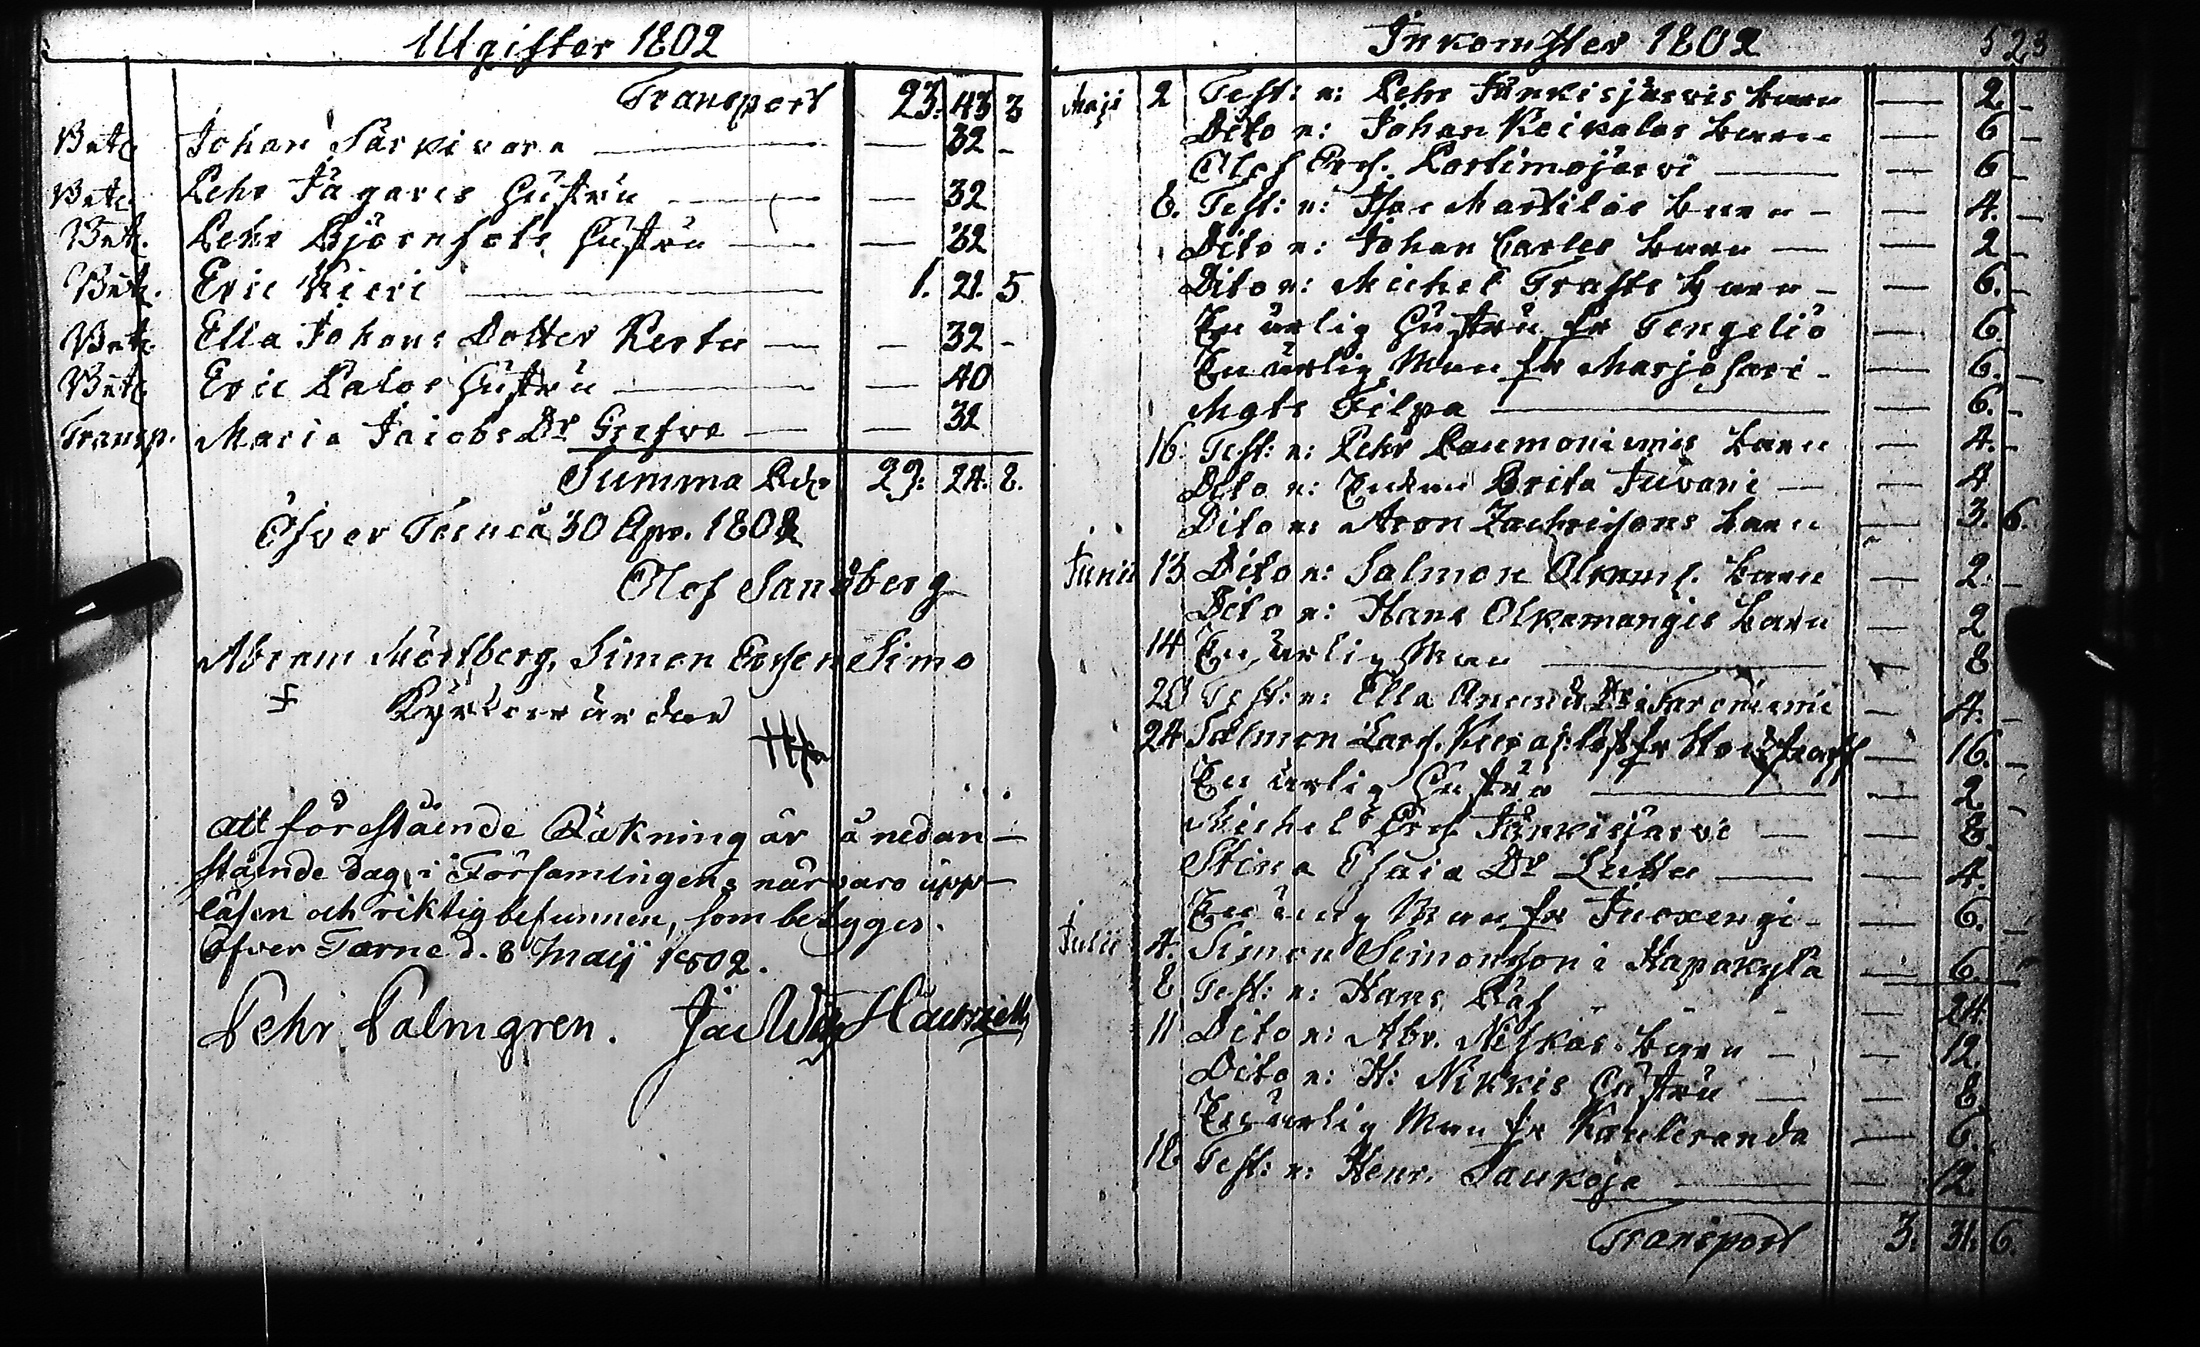 Utgifter 1802
Transport 23. 43 3
Johan Särkivara — — 32 -
Pehr Jägares Hustru — — 32
Pehr Björnfots Hustru — — 32
Eric Kieri — 1. 21. 5
Ella Johans Dotter — — 32 -
Eric Palos Hustru — — 40
Transp. Maria Jacobs Dr Grefve — — 32
Summa Rdr 29. 24. 8.
Öfver Torneå 30 Apr. 1802
Olof Sandberg
Abram Mörtberg, Simon Ersson Simo
Kyrkovärdar
Att förestående Räkning är å nedan-
stående dag, i Församlingens närvaro upp-
läsen och riktig befunnen, som betygges.
Öfver Torne d. 8 Maij 1802.
Pehr Palmgren.
Inkomster 1802 523
Maji 2 Test: n: Pehr Junkisjärvis barn — 2. -
Dito n: Johan barn — 6 -
Olof Ers. Portimojärvi — — 6 -
6. Test: n: Marttilas barn — — 4. -
Dito n: Johan Carles barn — — 2 -
Dito n: Michel Trasts barn — — 6. -
En ärlig Hustru fr Tengeliö — 6.
En ärlig Man fr Marjosari — — 6. -
Mats Filpa — — 6. -
16. Test: n: Pehr barn — 4. -
Dito n: Enkan Brita Juvani — — 4
Dito n: Aron Zachrisons barn — 3. 6.
Junii 13 Dito n: Salmon barn — 2. -
Dito n: Hans Olkamangis barn — 2
14 En ärlig Man — — 8
20 Test: n: Ella — 4. -
24 Salmon Lars. — 16. -
En ärlig Hustru — — 2 -
Michel Ers. Junkisjärvi — — 8.
Stina Esaia Dr — — 4.
En ärlig Man fr Juoxengi — 6. -
Julii 4. Simon Simonson i Hapakylä — 6.
8 Test: n: Hans Räf - - - 24
11 Dito n: Abr. Niskas barn — — 12
Dito n: H: Nikkis Hustru — — 8.
En ärlig Man fr Kauliranda — 6.
18 Test: n: Henr. Taukoja — — 12.
Transport 3. 31. 6.